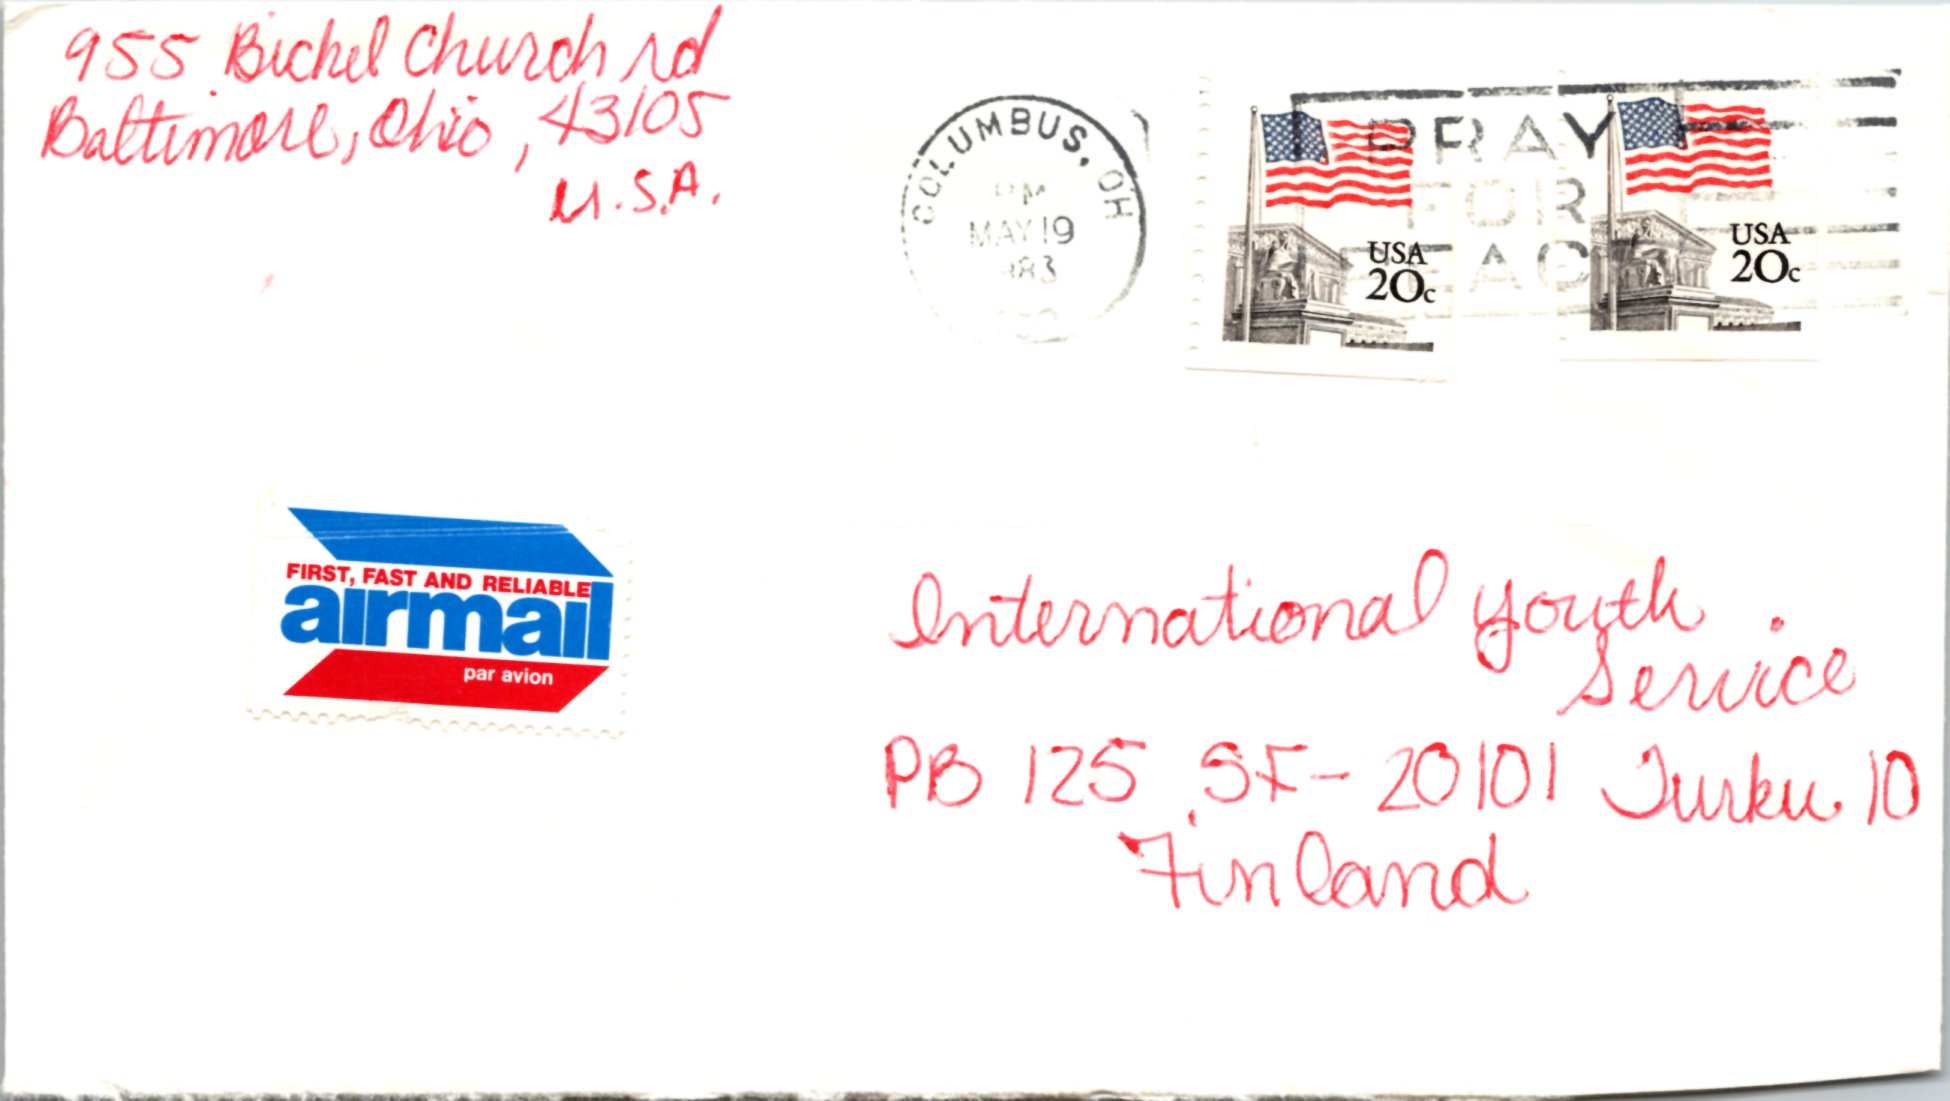 955 Bickel Church rd
Baltimore, Ohio, 43105
U.S.A.
COLUMBUS, OH
PM
MAY 19
983
PRAY
FOR
EAC
USA
20c
USA
20c
FIRST, FAST AND RELIABLE
airmail
par avion
International Youth
Service
PB 125 SF-20101 Turku 10
Finland